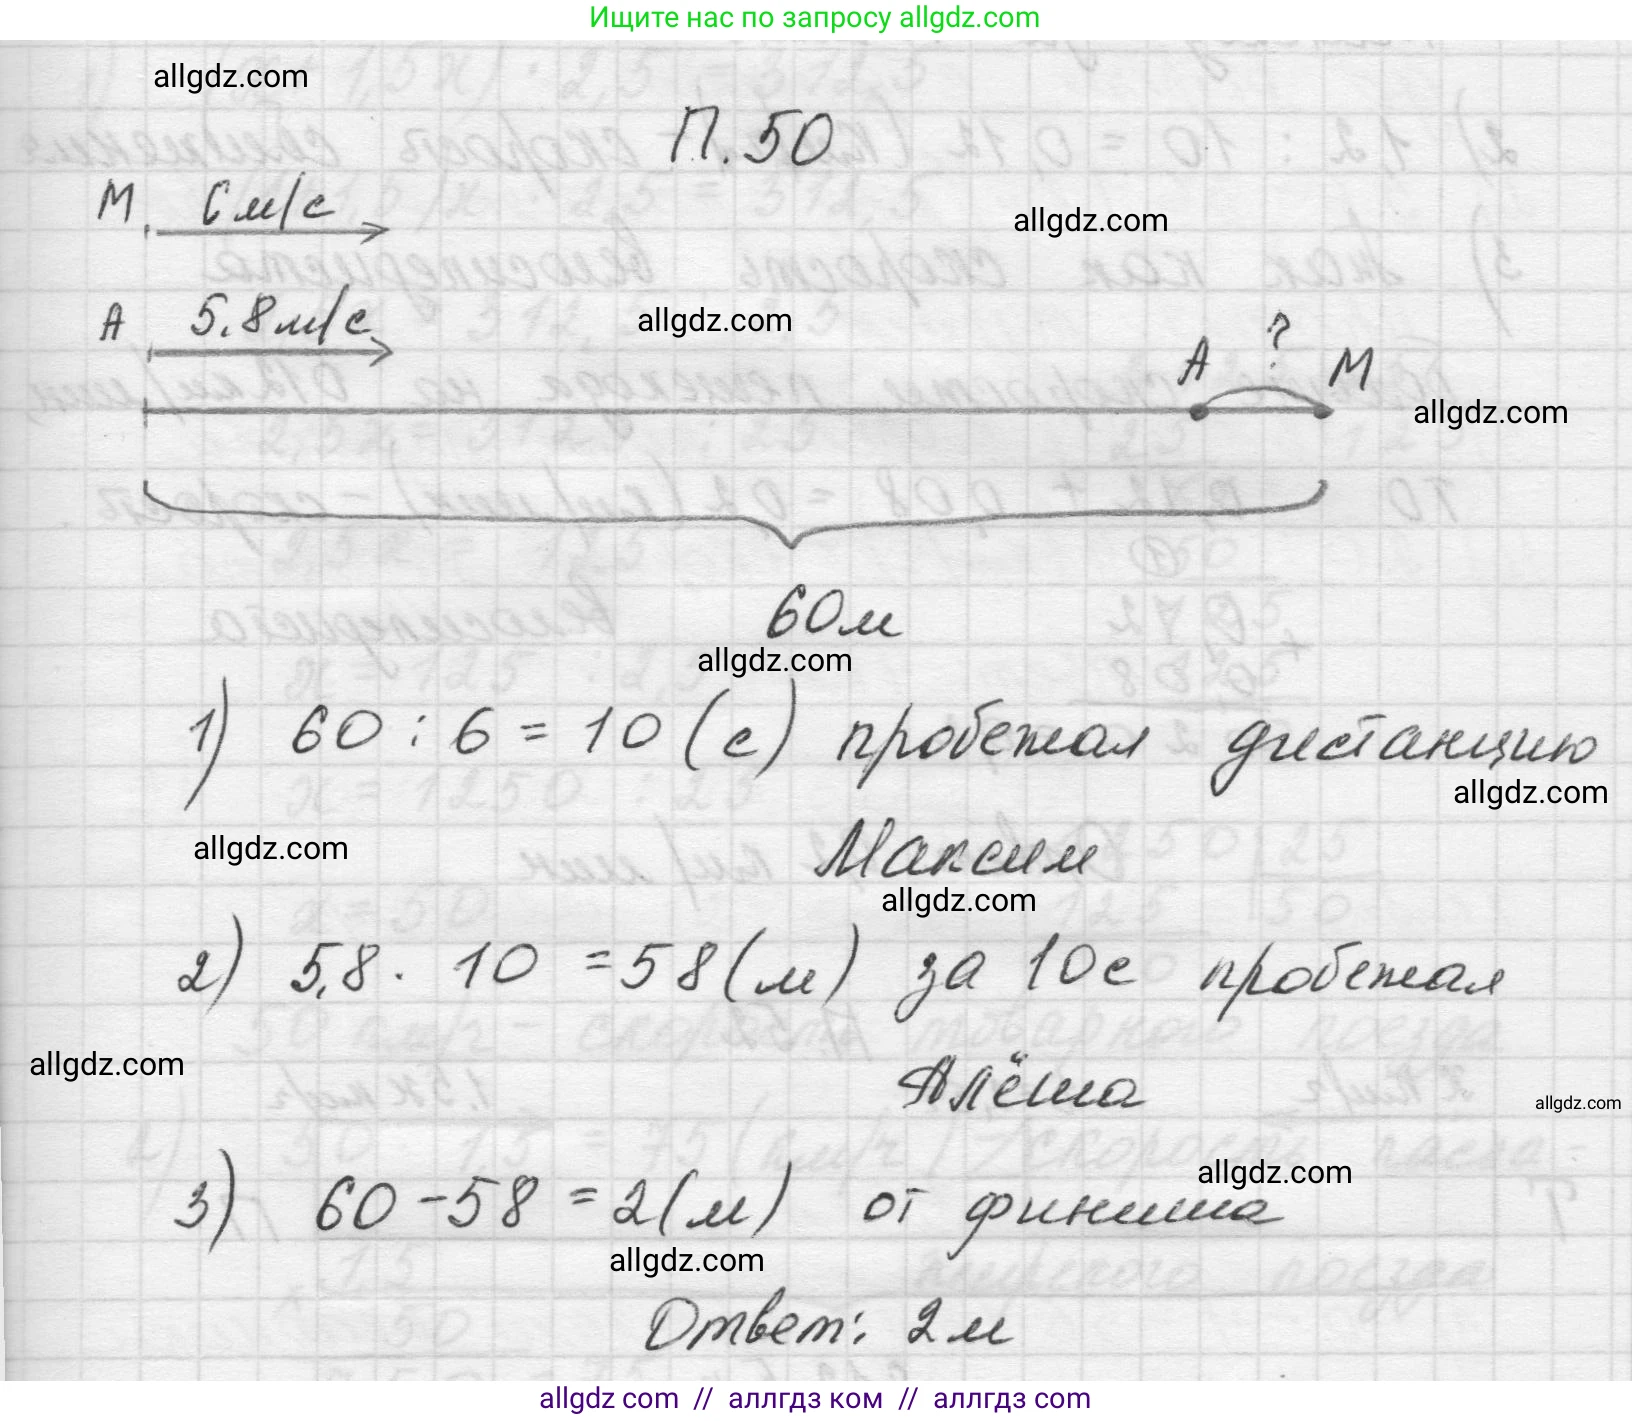 Ищите нас по запросу allgdz.com
allgdz.com
П.50
М 6 м/с
allgdz.com
А 5,8 м/с
allgdz.com
А ? М
allgdz.com
60 м
allgdz.com
1) 60 : 6 = 10 (с) пробежал дистанцию
allgdz.com
allgdz.com
Максим
allgdz.com
2) 5,8 · 10 = 58 (м) за 10 с пробежал
allgdz.com
Алёша
allgdz.com
allgdz.com
3) 60 - 58 = 2 (м) от финиша
allgdz.com
Ответ: 2 м
allgdz com // аллгдз ком // allgdz.com